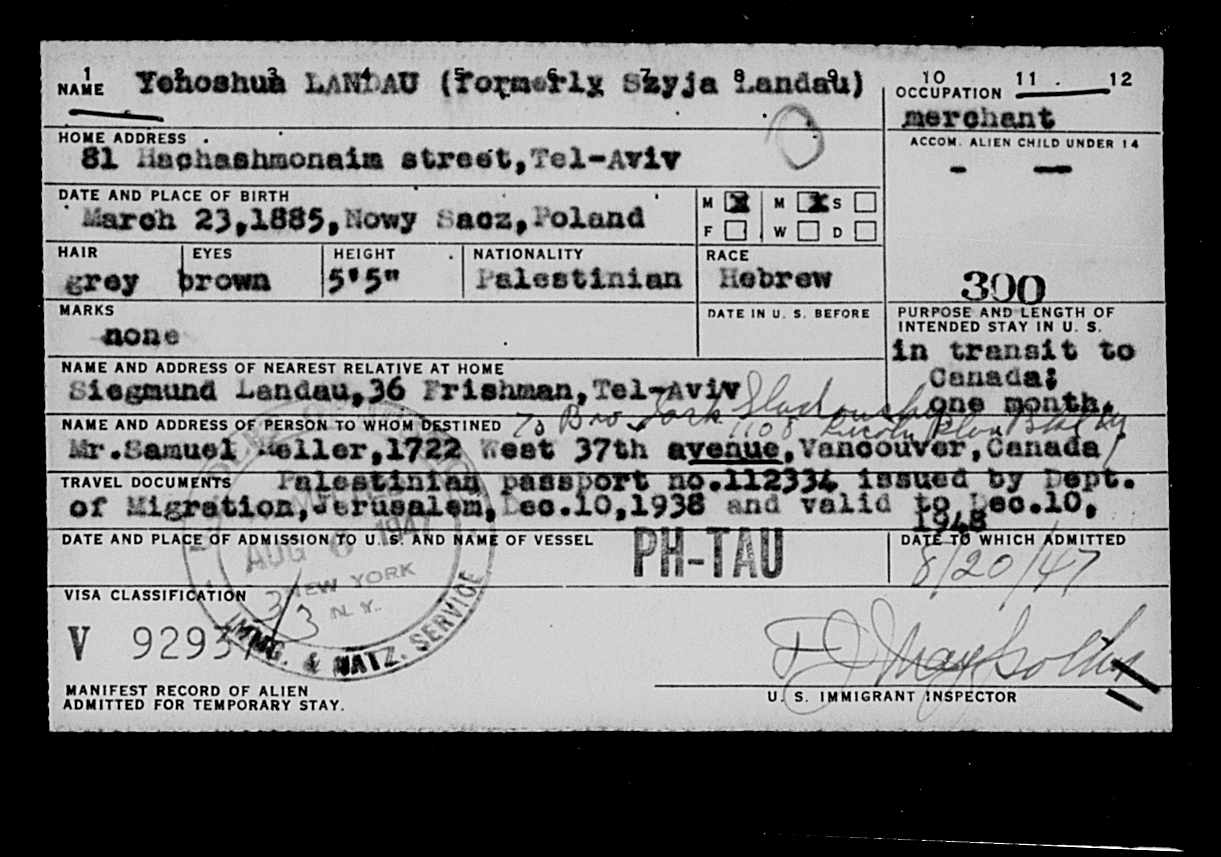 1 2 3 4 5 6 7 8 9 10 11 12
NAME Yehoshua LANDAU (formerly Szyja Landau)
OCCUPATION
merchant
HOME ADDRESS
81 Hachashmonaim street,Tel-Aviv
ACCOM. ALIEN CHILD UNDER 14
- -
DATE AND PLACE OF BIRTH
March 23,1885,Nowy Sacz,Poland
M X M X S
F W D
HAIR EYES HEIGHT NATIONALITY RACE
grey brown 5'5" Palestinian Hebrew
300
MARKS
none
DATE IN U. S. BEFORE
PURPOSE AND LENGTH OF
INTENDED STAY IN U. S.
in transit to
Canada;
one month.
NAME AND ADDRESS OF NEAREST RELATIVE AT HOME
Siegmund Landau,36 Frishman,Tel-Aviv
NAME AND ADDRESS OF PERSON TO WHOM DESTINED
Mr.Samuel Heller,1722 West 37th avenue,Vancouver,Canada
TRAVEL DOCUMENTS Palestinian passport no.112334 issued by Dept.
of Migration,Jerusalem,Dec.10,1938 and valid to Dec.10,
1948
DATE AND PLACE OF ADMISSION TO U. S. AND NAME OF VESSEL
PH-TAU
DATE TO WHICH ADMITTED
8/20/47
AUG 6 1947
NEW YORK
N. Y.
IMMG. & NATZ. SERVICE
VISA CLASSIFICATION
3/3
V 92937
U. S. IMMIGRANT INSPECTOR
MANIFEST RECORD OF ALIEN
ADMITTED FOR TEMPORARY STAY.